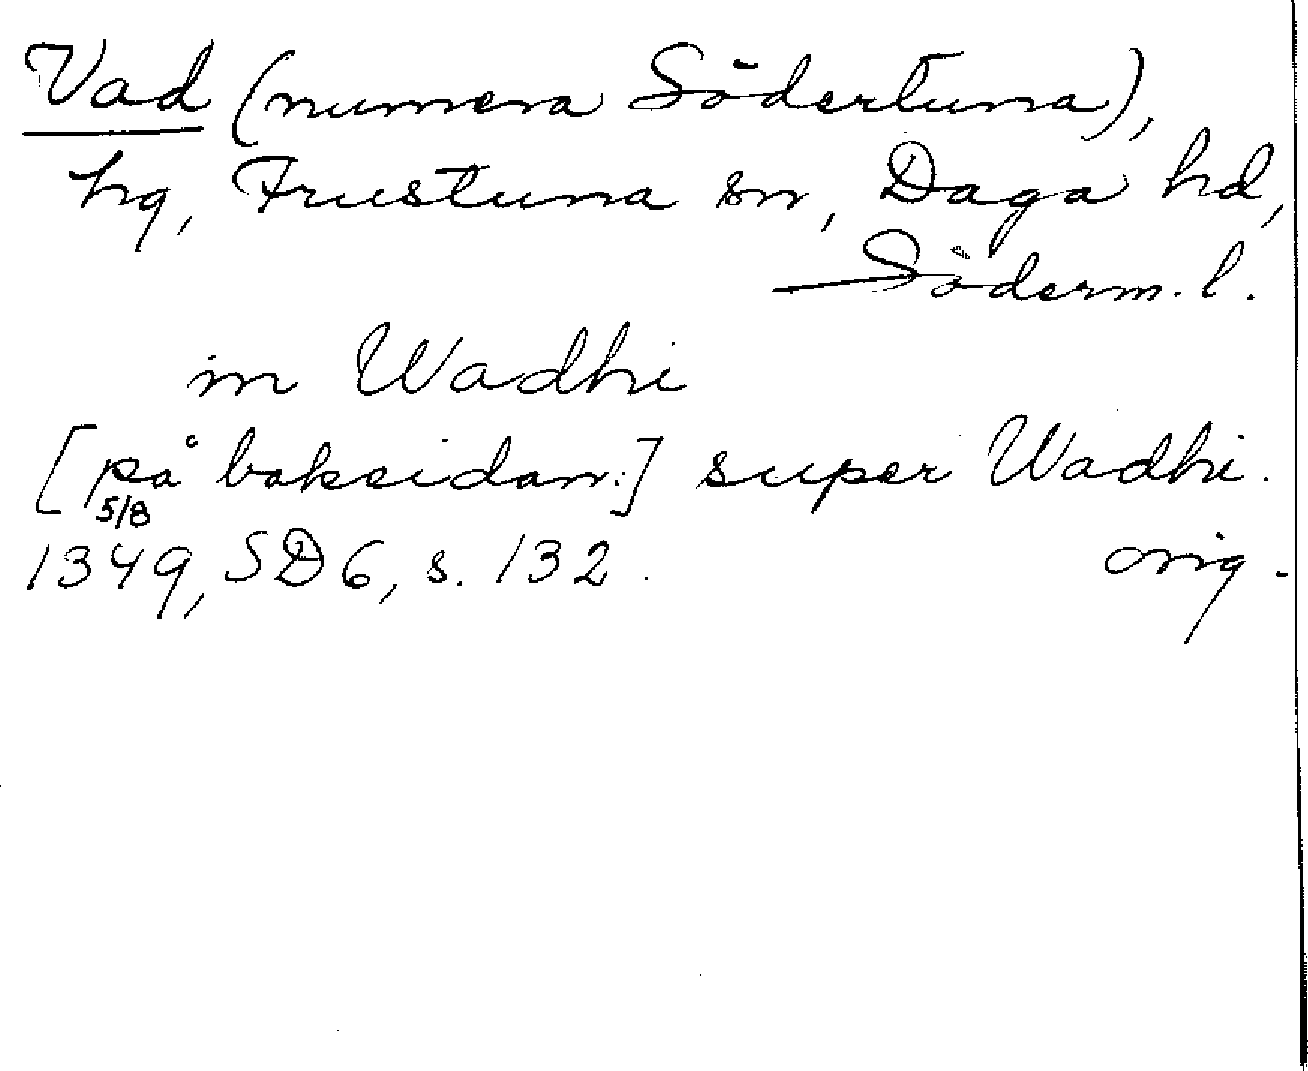 Vad (numera Södertuna),
hg, Frustuna sn, Daga hd,
Söderm. l.
in Wadhi
[på baksidan:] super Wadhi.
5/8
1349, SD 6, s. 132.    orig.